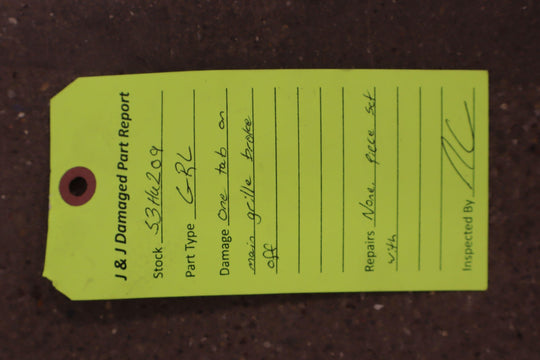 J & J Damaged Part Report
Stock S3H4209
Part Type GRL
Damage one tab on
main grille broke
off
Repairs None, piece set
with
Inspected By